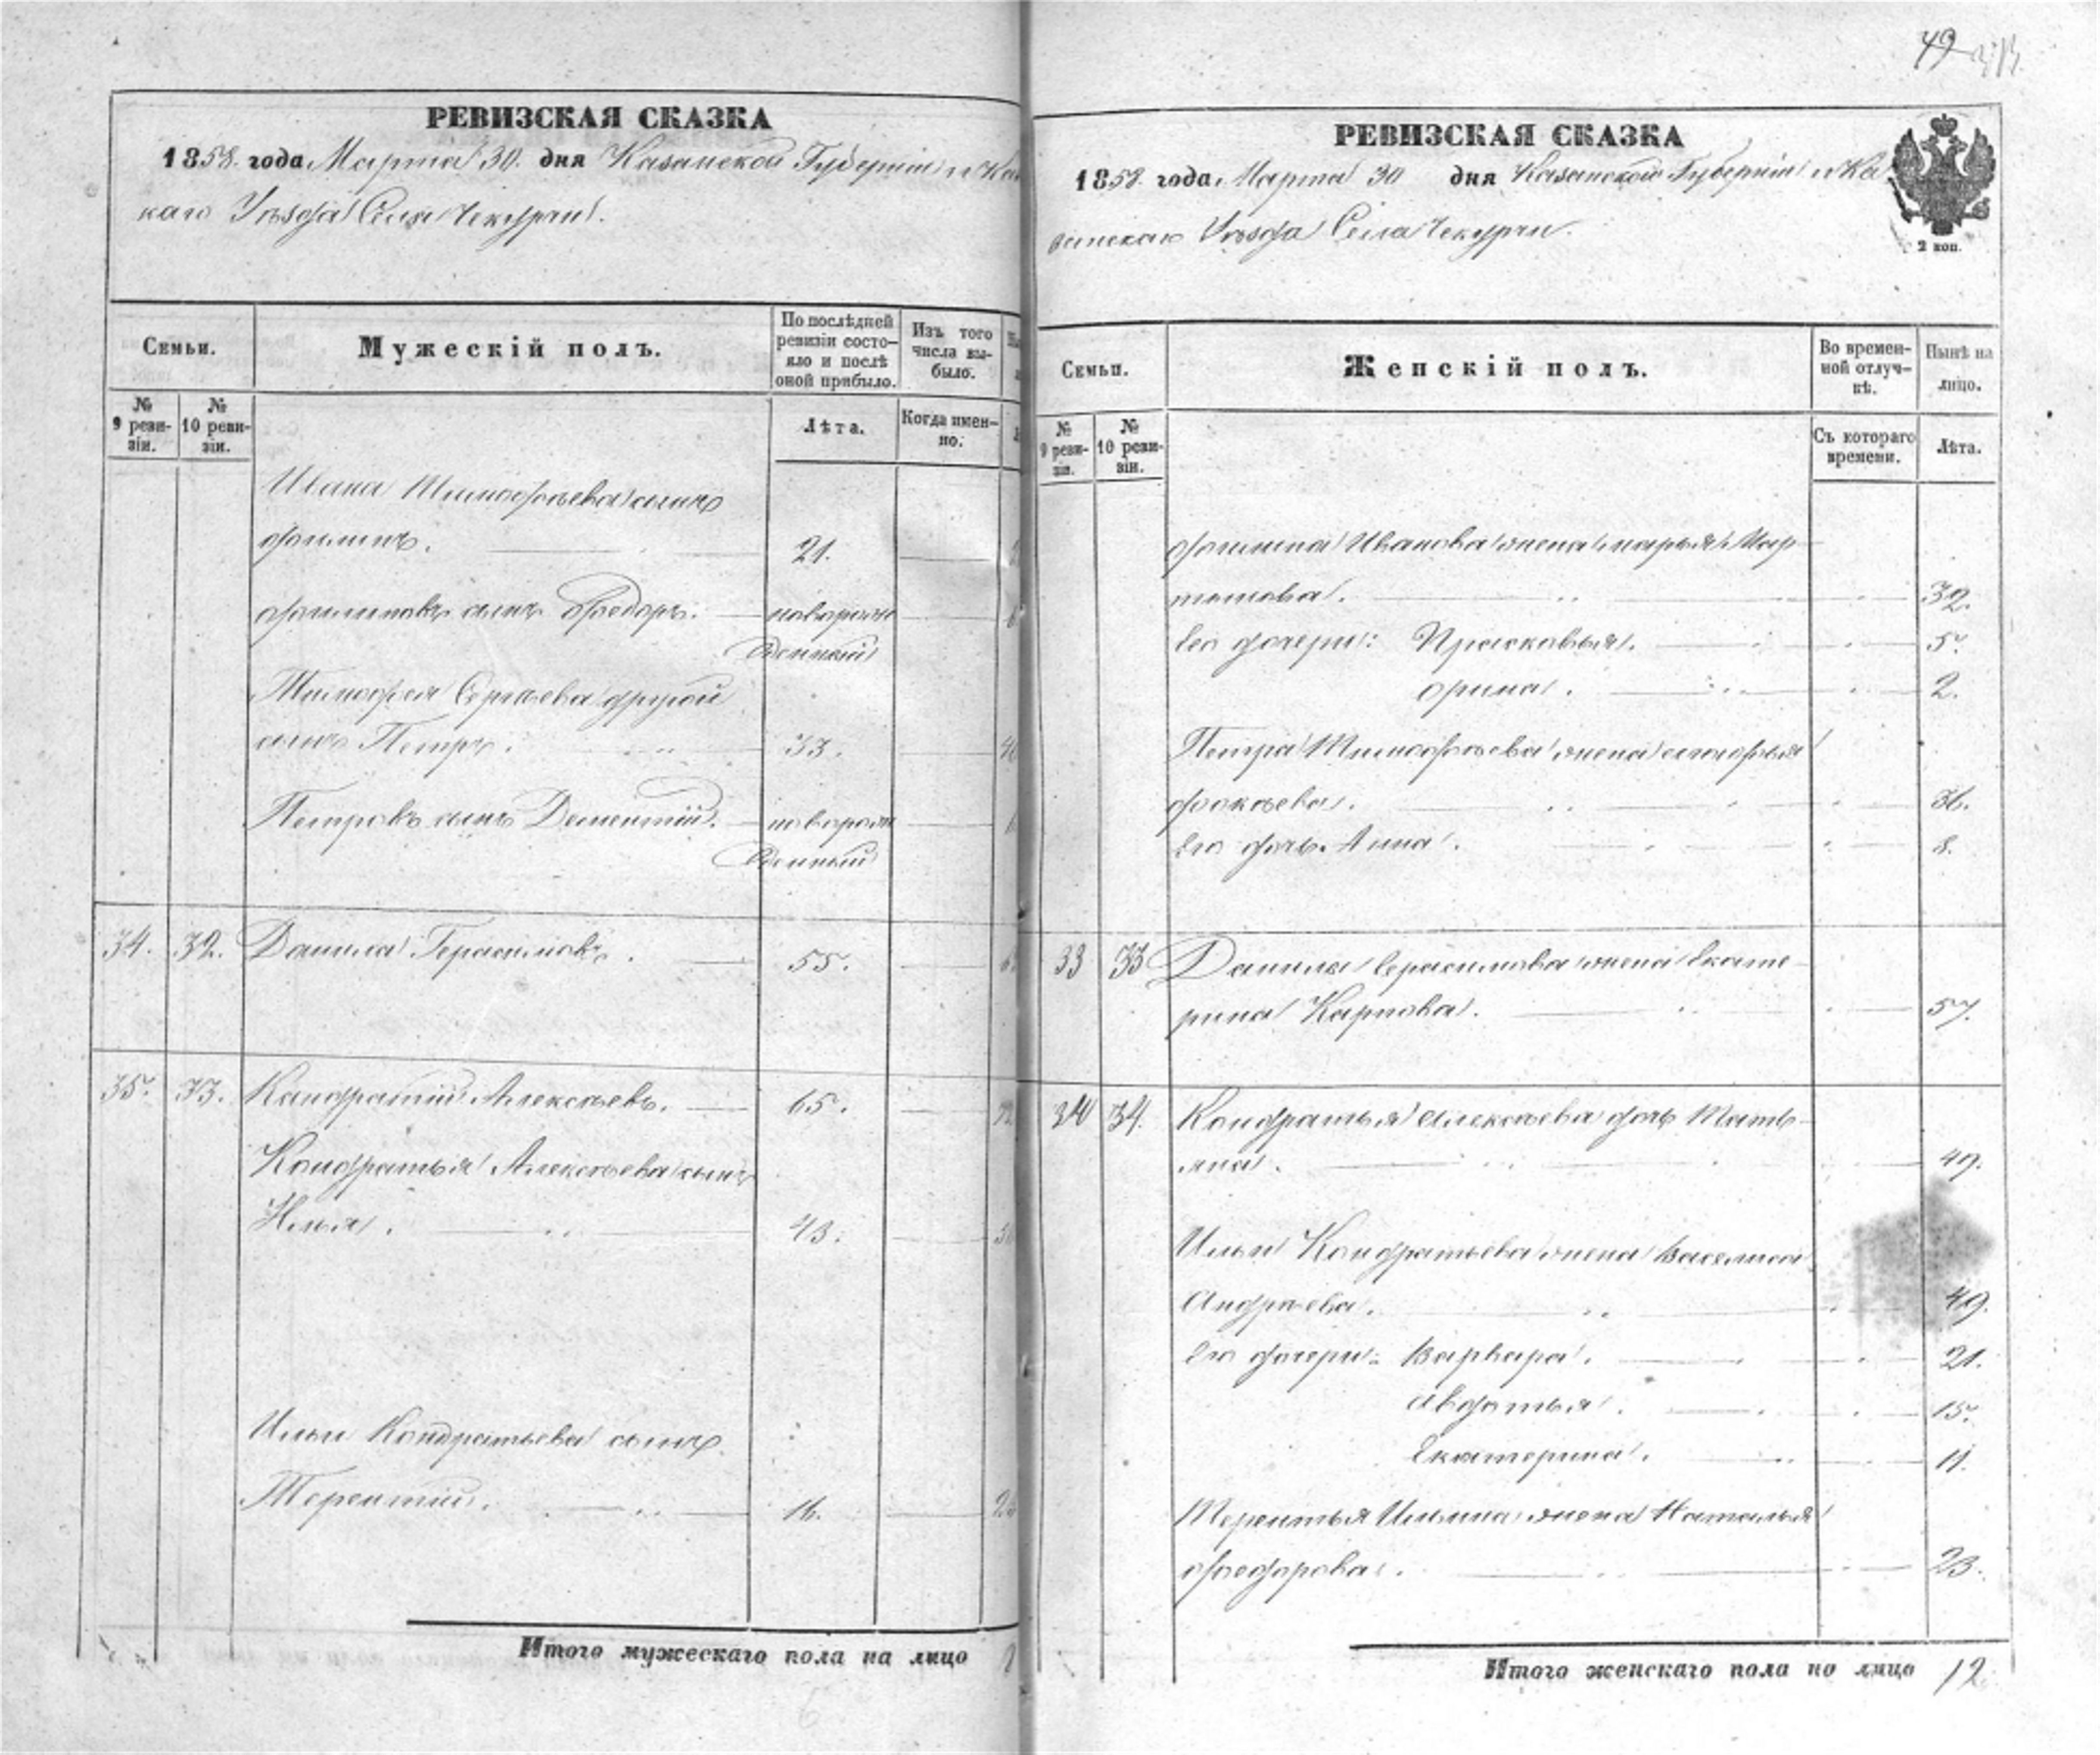 49
РЕВИЗСКАЯ СКАЗКА
1858 года Марта 30 дня Казанской Губерніи и Ка
каго Уѣзда Села Чекурчи.
Семьи.
Мужескій полъ.
По послѣдней ревизіи состояло и послѣ оной прибыло.
Изъ того числа выбыло.
№ 9 ревизіи.
№ 10 ревизіи.
Лѣта.
Когда именно.
Ивана Тимофѣева сынъ
Филипъ. 21.
Филиповъ сынъ Федоръ. новорож
денный
Тимофея Сергѣева другой
сынъ Петръ. 33.
Петровъ сынъ Дементій. новорож
денный
34. 32. Данила Герасимовъ. 55.
35. 33. Кондратій Алексѣевъ. 65.
Кондратья Алексѣева сынъ
Илья. 43.
Ильи Кондратьева сынъ
Терентий. 16.
Итого мужескаго пола на лицо
РЕВИЗСКАЯ СКАЗКА
1858 года Марта 30 дня Казанской Губерніи и Ка
Уѣзда Села Чекурчи.
2 коп.
Семьи.
Женскій полъ.
Во временной отлучкѣ.
Нынѣ на лицо.
№ 9 ревизіи.
№ 10 ревизіи.
Съ котораго времени.
Лѣта.
Филипа Иванова жена Марья Мар
тынова. 32.
Его дочери: Прасковья. 5.
Орина. 2.
Петра Тимофѣева жена
Фокѣева. 36.
Его дочь Анна. 8.
33 33 Данилы Герасимова жена Екате
рина Карпова. 57.
34 34. Кондратья Алексѣева дочь Тать
яна. 49.
Ильи Кондратьева жена Василиса
Андрѣева. 49.
Его дочери: Варвара. 21.
Авдотья. 15.
Екатерина. 11.
Терентья Ильина жена Наталья
Федорова. 23.
Итого женскаго пола на лицо 12